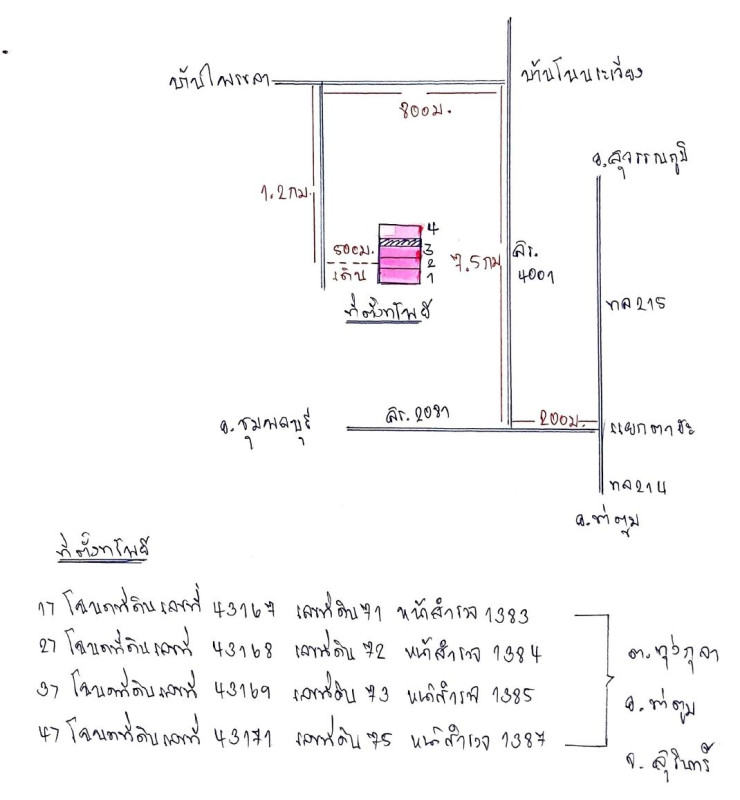 บ้านไพรขลา
บ้านโนนระเวียง
800ม.
อ.สุวรรณภูมิ
1.2กม.
4
3
2
1
500ม.
เดิน
7.5กม
สร.
4001
ที่ตั้งทรัพย์
ทล215
อ.ชุมพลบุรี
สร.2081
200ม.
แยกตาฮะ
ทล214
อ.ท่าตูม
ที่ตั้งทรัพย์
1) โฉนดที่ดินเลขที่ 43167 เลขที่ดิน 71 หน้าสำรวจ 1383
2) โฉนดที่ดินเลขที่ 43168 เลขที่ดิน 72 หน้าสำรวจ 1384
3) โฉนดที่ดินเลขที่ 43169 เลขที่ดิน 73 หน้าสำรวจ 1385
4) โฉนดที่ดินเลขที่ 43171 เลขที่ดิน 75 หน้าสำรวจ 1387
ต.ทุ่งกุลา
อ.ท่าตูม
จ.สุรินทร์